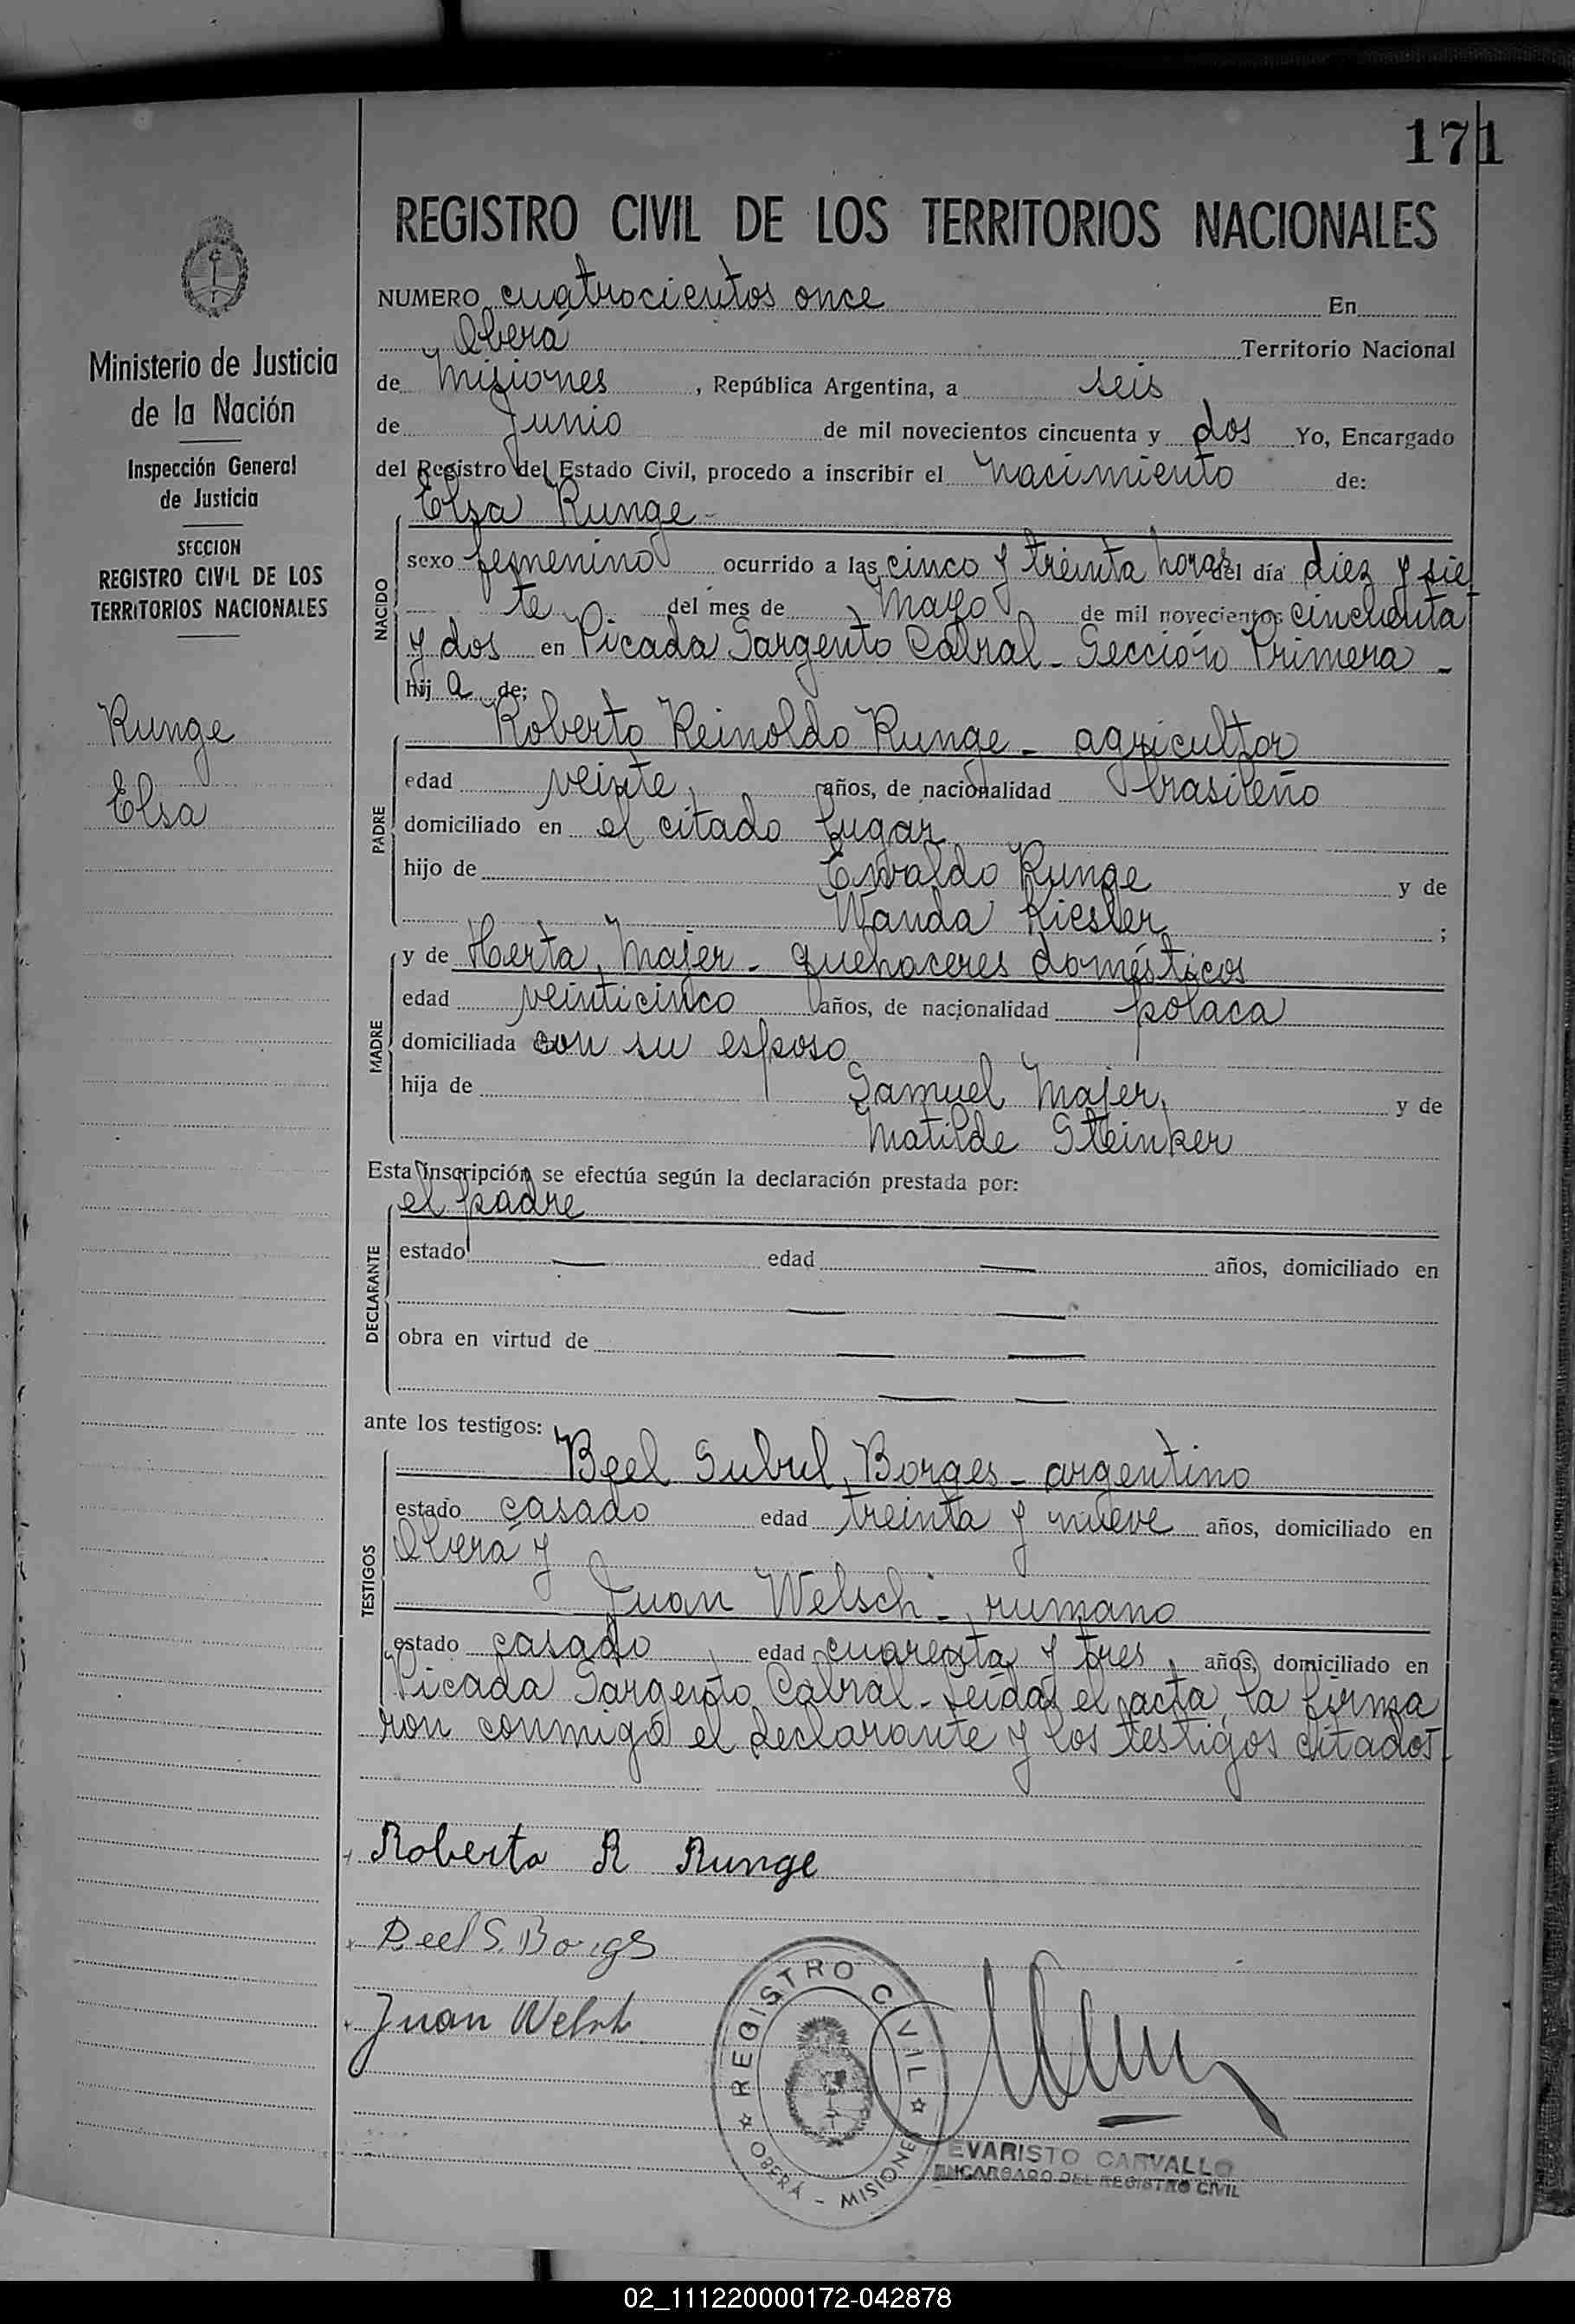 171
REGISTRO CIVIL DE LOS TERRITORIOS NACIONALES
Ministerio de Justicia
de la Nación
Inspección General
de Justicia
SECCION
REGISTRO CIVIL DE LOS
TERRITORIOS NACIONALES
Runge
Elsa
NUMERO cuatrocientos once En
Oberá Territorio Nacional
de Misiones, República Argentina, a seis
de Junio de mil novecientos cincuenta y dos Yo, Encargado
del Registro del Estado Civil, procedo a inscribir el nacimiento de:
Elsa Runge-
NACIDO
sexo femenino ocurrido a las cinco y treinta horas del día diez y sie
te del mes de mayo de mil novecientos cincuenta
y dos en Picada Sargento Cabral - Sección Primera -
hij a de;
PADRE
Roberto Reinoldo Runge - agricultor
edad veinte años, de nacionalidad brasileño
domiciliado en el citado lugar
hijo de Ewaldo Runge y de
Wanda Kiesler ;
MADRE
y de Herta Majer - quehaceres domésticos
edad veinticinco años, de nacionalidad polaca
domiciliada con su esposo
hija de Samuel Majer y de
Matilde Steinker
Esta inscripción se efectúa según la declaración prestada por:
el padre
DECLARANTE
estado — edad — años, domiciliado en
— —
obra en virtud de — —
— —
ante los testigos:
TESTIGOS
Beel Subul Borges - argentino
estado casado edad treinta y nueve años, domiciliado en
Oberá y
Juan Welsch - rumano
estado casado edad cuarenta y tres años, domiciliado en
Picada Sargento Cabral - Leída el acta, la firma
ron conmigo el declarante y los testigos citados-
Roberto R Runge
Beel S. Borges
Juan Welsch
REGISTRO CIVIL
OBERÁ - MISIONES
EVARISTO CARVALLO
ENCARGADO DEL REGISTRO CIVIL
02_111220000172-042878